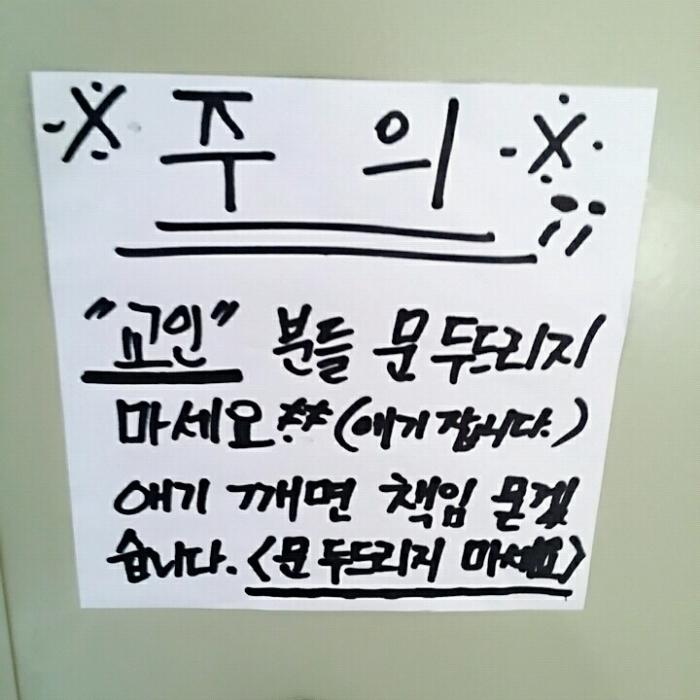 ※ 주 의 ※;;
"교인" 분들 문 두드리지
마세요** (애기 잡니다.)
애기 깨면 책임 묻겠
습니다. <문 두드리지 마세요>